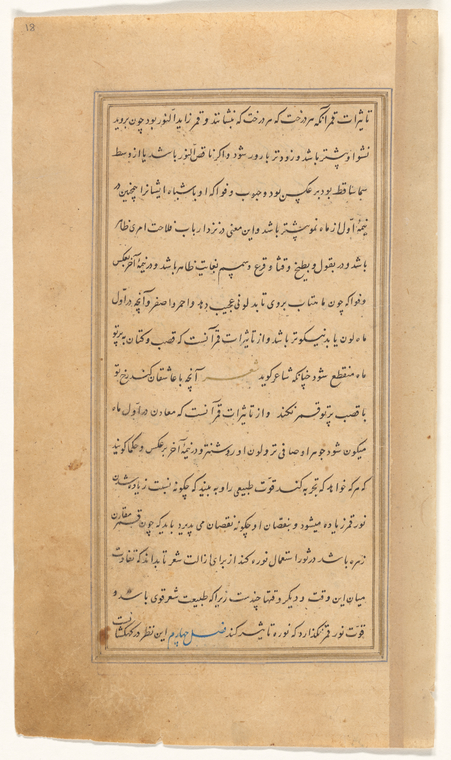 18
تاثیرات قمر آنکه هر درخت که هر درخت که بنشانند و قمر زاید النور بود چون بروید
نشو او بیشتر باشد و زودتر بارور شود و اگر ناقص النور باشد یا از وسط
سما ساقط بود بر عکس این بود و حبوب و فواکه او باشباه ایشانرا همچنین در
نیمهٔ اول از ماه نمو بیشتر باشد و این معنی در نزد ارباب فلاحت امری ظاهر
باشد و در بقول و بطیخ و قثا و قرع و سمسم بغایت ظاهر باشد و در نیمهٔ آخر بعکس
و فواکه چون ماهتاب بروی تابد لونی عجیب دهد و احمر و اصفر و آنچه در اول
ماه لون یابد نیکوتر باشد و از تاثیرات قمر آنست که قصب و کتان به پرتو
ماه منقطع شود چنانکه شاعر گوید شعر آنچه با عاشقان کند رخ تو
با قصب پرتو قمر نکند و از تاثیرات قمر آنست که معادن در اول ماه
میکون شود جوهر او صافی تر و لون او روشنتر و در نیمهٔ آخر بر عکس و حکما گویند
که هر که خواهد که تجربه کند قوت طبیعی را و به بیند که چگونه بسبب زیاده شدن
نور قمر زیاده میشود و بنقصان او چگونه نقصان می پذیرد باید که چون قمر مقارن
زهره باشد در ثور استعمال نوره کند از برای ازالت شعر تا بداند که تفاوت
میان این وقت و دیگر وقتها چندست زیرا که طبیعت شعر قوی باشد و
قوت نور قمر نگذارد که نوره تاثیر کند فصل چهارم این نظر در کهکشانست